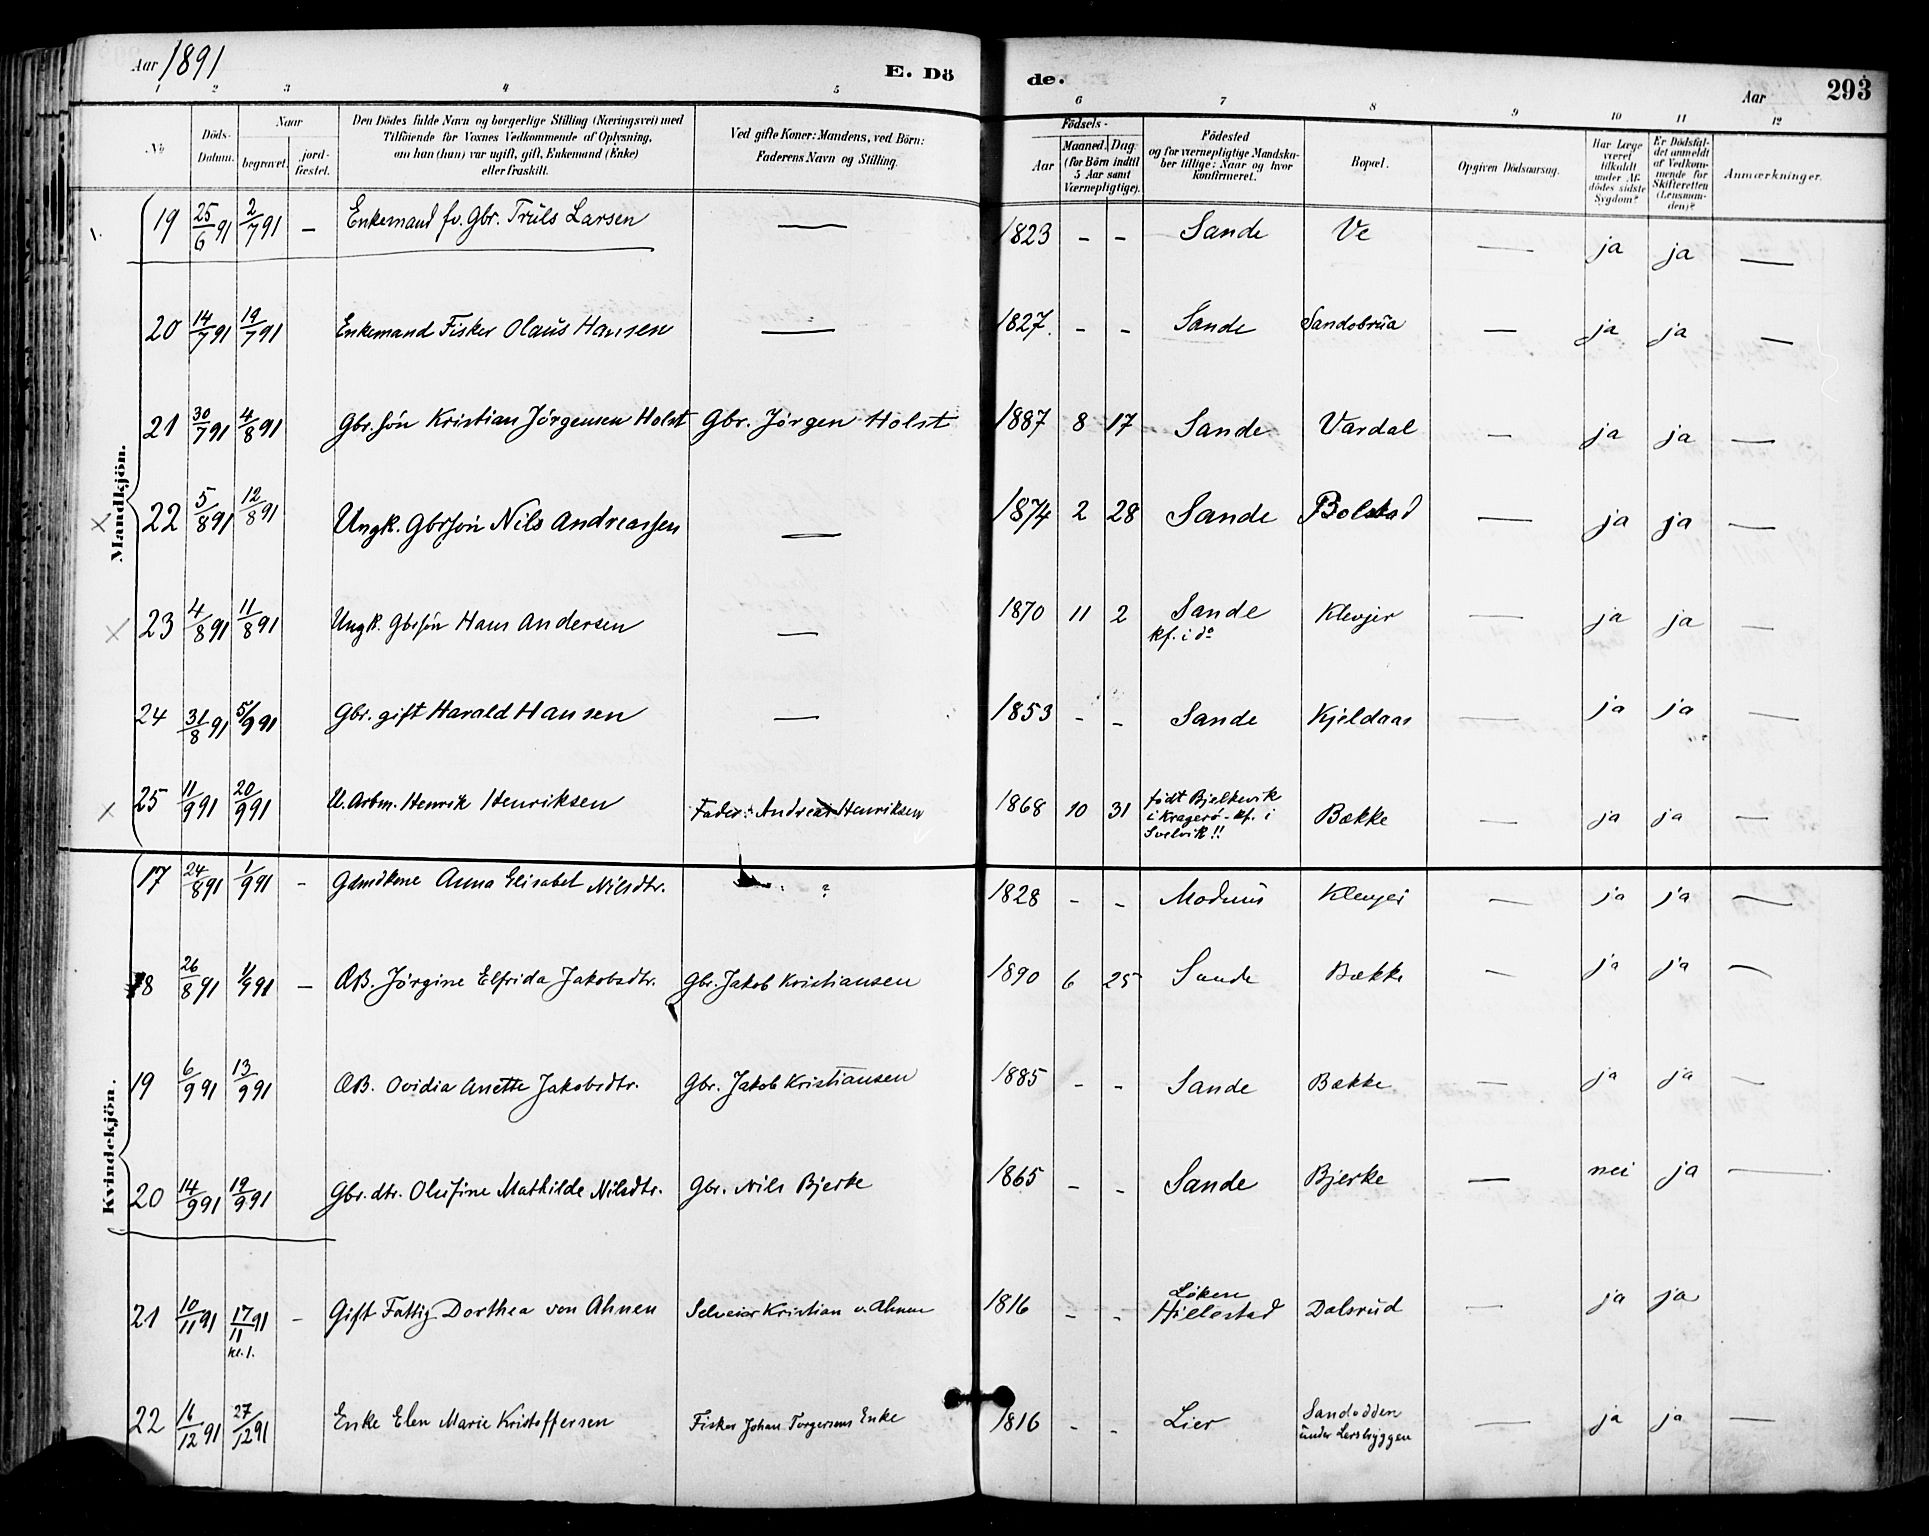 Aar 1891
E. Dö
de.
Aar
293
1 2 3 4 5 6 7 8 9 10 11 12
No
Döds-Datum.
Naar
begravet.
jord-fæstet.
Den Dödes fulde Navn og borgerlige Stilling (Næringsvei) med
Tilföiende for Voxnes Vedkommende af Oplysning,
om han (hun) var ugift, gift, Enkemand (Enke)
eller fraskilt.
Ved gifte Koner: Mandens, ved Börn:
Faderens Navn og Stilling.
Födsels-
Aar
Maaned. Dag.
(for Börn indtil
5 Aar samt
Værnepligtige).
Födested
og for værnepligtige Mandska-
ber tillige: Naar og hvor
konfirmeret.
Bopæl.
Opgiven Dödsaarsag.
Har Læge
været
tilkaldt
under Af-
dödes sidste
Sygdom?
Er Dödsfal-
det anmeldt
af Vedkom-
mende for
Skifteretten
(Lensman-
den)?
Anmærkninger.
Mandkjön.
19 25/6 91 2/7 91 – Enkemand fv. Gbr. Truls Larsen — 1823 – – Sande Ve — ja ja —
20 14/7 91 19/7 91 Enkemand Fisker Olaus Hansen — 1827. – – Sande Sandebrua — ja ja —
21 30/7 91 4/8 91 Gbr.sön Kristian Jörgensen Holst Gbr. Jörgen Holst 1887 8 17 Sande Vardal — ja ja —
22 5/8 91 12/8 91 Ungk. Gbrsön Nils Andreassen — 1874 2 28 Sande Bolstad — ja ja —
23 4/8 91 11/8 91 Ungk. Gbrsön Hans Andersen — 1870 11 2 Sande Klevjer — ja ja —
kf. i do
24 31/8 91 5/9 91 Gbr. gift Harald Hansen — 1853 – – Sande Kjeldaas — ja ja —
25 11/9 91 20/9 91 U. Arbm. Henrik Henriksen Fader: Andreas Henriksen 1868 10 31 født Bjelkevik
i Kragerö - kf. i
Svelvik!! Bække — ja ja —
Kvindekjön.
17 24/8 91 1/9 91 – Gdmdkone Anna Elisabet Nilsdtr. ? 1828 – – Modum Klevjer — ja ja —
18 26/8 91 1/9 91 – ÆB. Jörgine Elfrida Jakobsdtr. Gbr. Jakob Kristiansen 1890 6 25 Sande Bække — ja ja —
19 6/9 91 13/9 91 ÆB. Ovidia Anette Jakobsdtr. Gbr. Jakob Kristiansen 1885 – – Sande Bække — ja ja —
20 14/9 91 19/9 91 Gbr. dtr. Olufine Mathilde Nilsdtr. Gbr. Nils Bjerke 1865 – – Sande Bjerke — nei ja —
21 10/11 91 17/11 91 – Gift Fattig Dorthea von Ahnen Selveier Kristian v. Ahnen 1816 – – Löken
Hillestad Dalsrud — ja ja
kl. 1.
22 16/12 91 27/12 91 Enke Elen Marie Kristoffersen Fisker Johan Torgersens Enke 1816 – – Lier Sandodden
under Lersbryggen — ja ja —